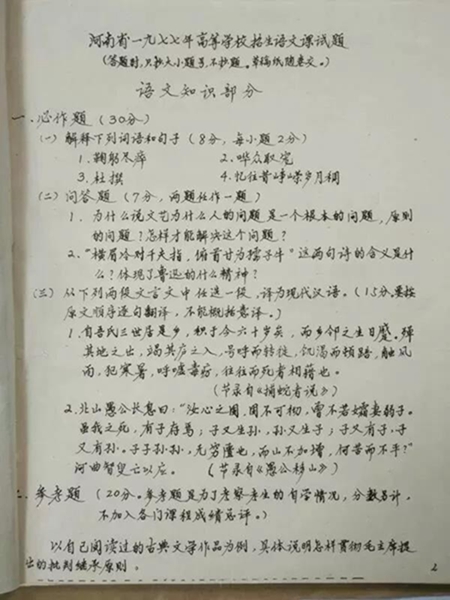 河南省一九七七年高等学校招生语文课试题
(答题时,只抄大小题号,不抄题。草稿纸随卷交。)
语文知识部分
一.必作题(30分)
(一)解释下列词语和句子(8分,每小题2分)
1.鞠躬尽瘁 2.哗众取宠
3.杜撰 4.忆往昔峥嵘岁月稠
(二)问答题(7分,两题任作一题)
1.为什么说文艺为什么人的问题是一个根本的问题,原则
的问题?怎样才能解决这个问题?
2."横眉冷对千夫指,俯首甘为孺子牛"这两句诗的含义是什
么?体现了鲁迅的什么精神?
(三)从下列两段文言文中任选一段,译为现代汉语。(15分,要按
原文顺序逐句翻译,不能概括意译。)
1.自吾氏三世居是乡,积于今六十岁矣,而乡邻之生日蹙。殚
其地之出,竭其庐之入,号呼而转徙,饥渴而顿踣,触风
雨,犯寒暑,呼嘘毒疠,往往而死者相藉也。
(节录自《捕蛇者说》)
2.北山愚公长息曰:"汝心之固,固不可彻,曾不若孀妻弱子。
虽我之死,有子存焉;子又生孙,孙又生子;子又有子,子
又有孙。子子孙孙,无穷匮也,而山不加增,何苦而不平?"
河曲智叟亡以应。 (节录自《愚公移山》)
二.参考题(20分。参考题是为了考察考生的自学情况,分数另计,
不加入各门课程成绩总评。)
以自己阅读过的古典文学作品为例,具体说明怎样贯彻毛主席提
出的批判继承原则。
2